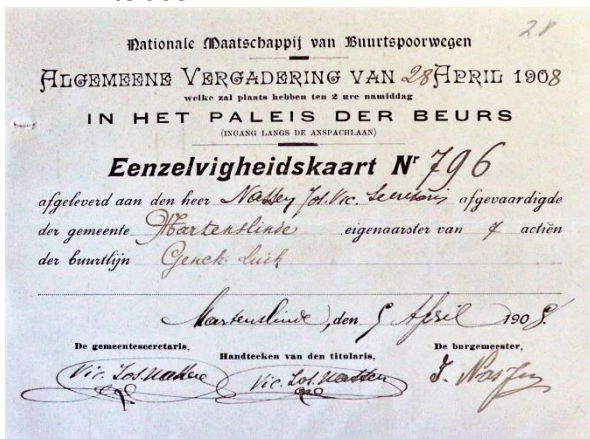 28
Nationale Maatschappij van Buurtspoorwegen
ALGEMEENE VERGADERING VAN 28 APRIL 1908
welke zal plaats hebben ten 2 ure namiddag
IN HET PALEIS DER BEURS
(INGANG LANGS DE ANSPACHLAAN)
Eenzelvigheidskaart Nr 796
afgeleverd aan den heer Jos. Vic. Secretaris afgevaardigde
der gemeente Martenslinde eigenaarster van 7 actiën
der buurtlijn Genck-Luik
Martenslinde, den 9 April 1908.
De gemeentesecretaris,
Handteeken van den titularis,
De burgemeester,
Vic. Jos.
Vic. Jos.